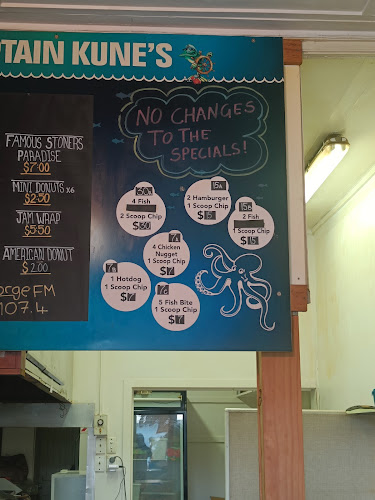 TAIN KUNE'S
NO CHANGES
TO THE
SPECIALS!
FAMOUS STONERS
PARADISE
$7.00
MINI DONUTS x6
$2.50
JAM WRAP
$5.50
AMERICAN DONUT
$2.00
orge FM
107.4
4 Fish
2 Scoop Chip
$30
15A
2 Hamburger
1 Scoop Chip
$15
15B
2 Fish
1 Scoop Chip
$15
7A
4 Chicken
Nugget
1 Scoop Chip
$7
7B
1 Hotdog
1 Scoop Chip
$7
7C
5 Fish Bite
1 Scoop Chip
$7